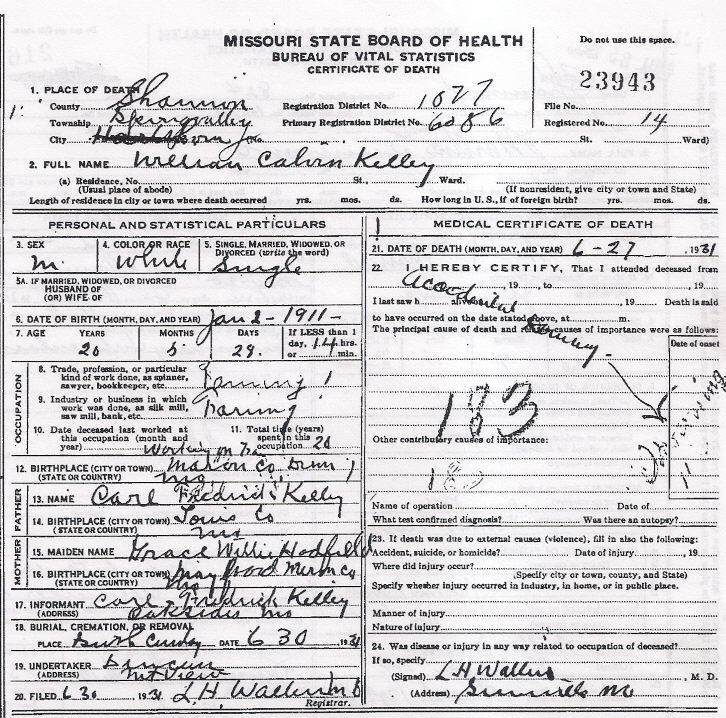 MISSOURI STATE BOARD OF HEALTH
BUREAU OF VITAL STATISTICS
CERTIFICATE OF DEATH
Do not use this space.
23943
1. PLACE OF DEATH
County Shannon Registration District No. 1077 File No.
Township Springvalley Primary Registration District No. 6086 Registered No. 14
City (No. St. Ward)
2. FULL NAME William Calvin Kelley
(a) Residence, No. St., Ward.
(Usual place of abode) (If nonresident, give city or town and State)
Length of residence in city or town where death occurred yrs. mos. ds. How long in U.S., if of foreign birth? yrs. mos. ds.
PERSONAL AND STATISTICAL PARTICULARS
3. SEX 4. COLOR OR RACE 5. SINGLE, MARRIED, WIDOWED, OR DIVORCED (write the word)
m. White Single
5A. IF MARRIED, WIDOWED, OR DIVORCED
HUSBAND OF
(OR) WIFE OF
6. DATE OF BIRTH (MONTH, DAY, AND YEAR) Jan 2 - 1911 -
7. AGE YEARS MONTHS DAYS If LESS than 1
day, hrs.
20 5 29. or min.
OCCUPATION
8. Trade, profession, or particular
kind of work done, as spinner,
sawyer, bookkeeper, etc. Farming
9. Industry or business in which
work was done, as silk mill,
saw mill, bank, etc. Farming
10. Date deceased last worked at
this occupation (month and
year) Working on
11. Total time (years)
spent in this
occupation 20
12. BIRTHPLACE (CITY OR TOWN) Marion Co
(STATE OR COUNTRY) Mo
FATHER
13. NAME Carl Fredrick Kelley
14. BIRTHPLACE (CITY OR TOWN) Louis Co
(STATE OR COUNTRY) Mo
MOTHER
15. MAIDEN NAME Grace Willie Hodfield
16. BIRTHPLACE (CITY OR TOWN) Co
(STATE OR COUNTRY) Mo
17. INFORMANT Carl Fredrick Kelley
(ADDRESS) Oakside Mo
18. BURIAL, CREMATION, OR REMOVAL
PLACE DATE 6 30 1931
19. UNDERTAKER Duncan
(ADDRESS) Mt View
20. FILED 6 30 1931 L.H. Wallers MD
Registrar.
MEDICAL CERTIFICATE OF DEATH
21. DATE OF DEATH (MONTH, DAY, AND YEAR) 6-27, 1931
22. I HEREBY CERTIFY, That I attended deceased from
Accidental , 19 , to , 19
I last saw h alive on , 19 Death is said
to have occurred on the date stated above, at m.
The principal cause of death and related causes of importance were as follows:
Date of onset
183
Other contributory causes of importance:
Name of operation Date of
What test confirmed diagnosis? Was there an autopsy?
23. If death was due to external causes (violence), fill in also the following:
Accident, suicide, or homicide? Date of injury , 19
Where did injury occur?
(Specify city or town, county, and State)
Specify whether injury occurred in industry, in home, or in public place.
Manner of injury
Nature of injury
24. Was disease or injury in any way related to occupation of deceased?
If so, specify
(Signed) L H Wallers , M. D.
(Address) Mo